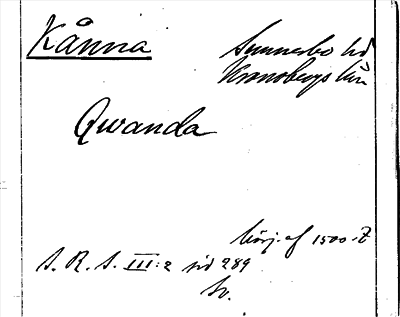 Kånna
Sunnerbo hd
Kronobergs län
Qwanda
börj. af 1500-t
S. R. S. III:2 sid 289
Sv.